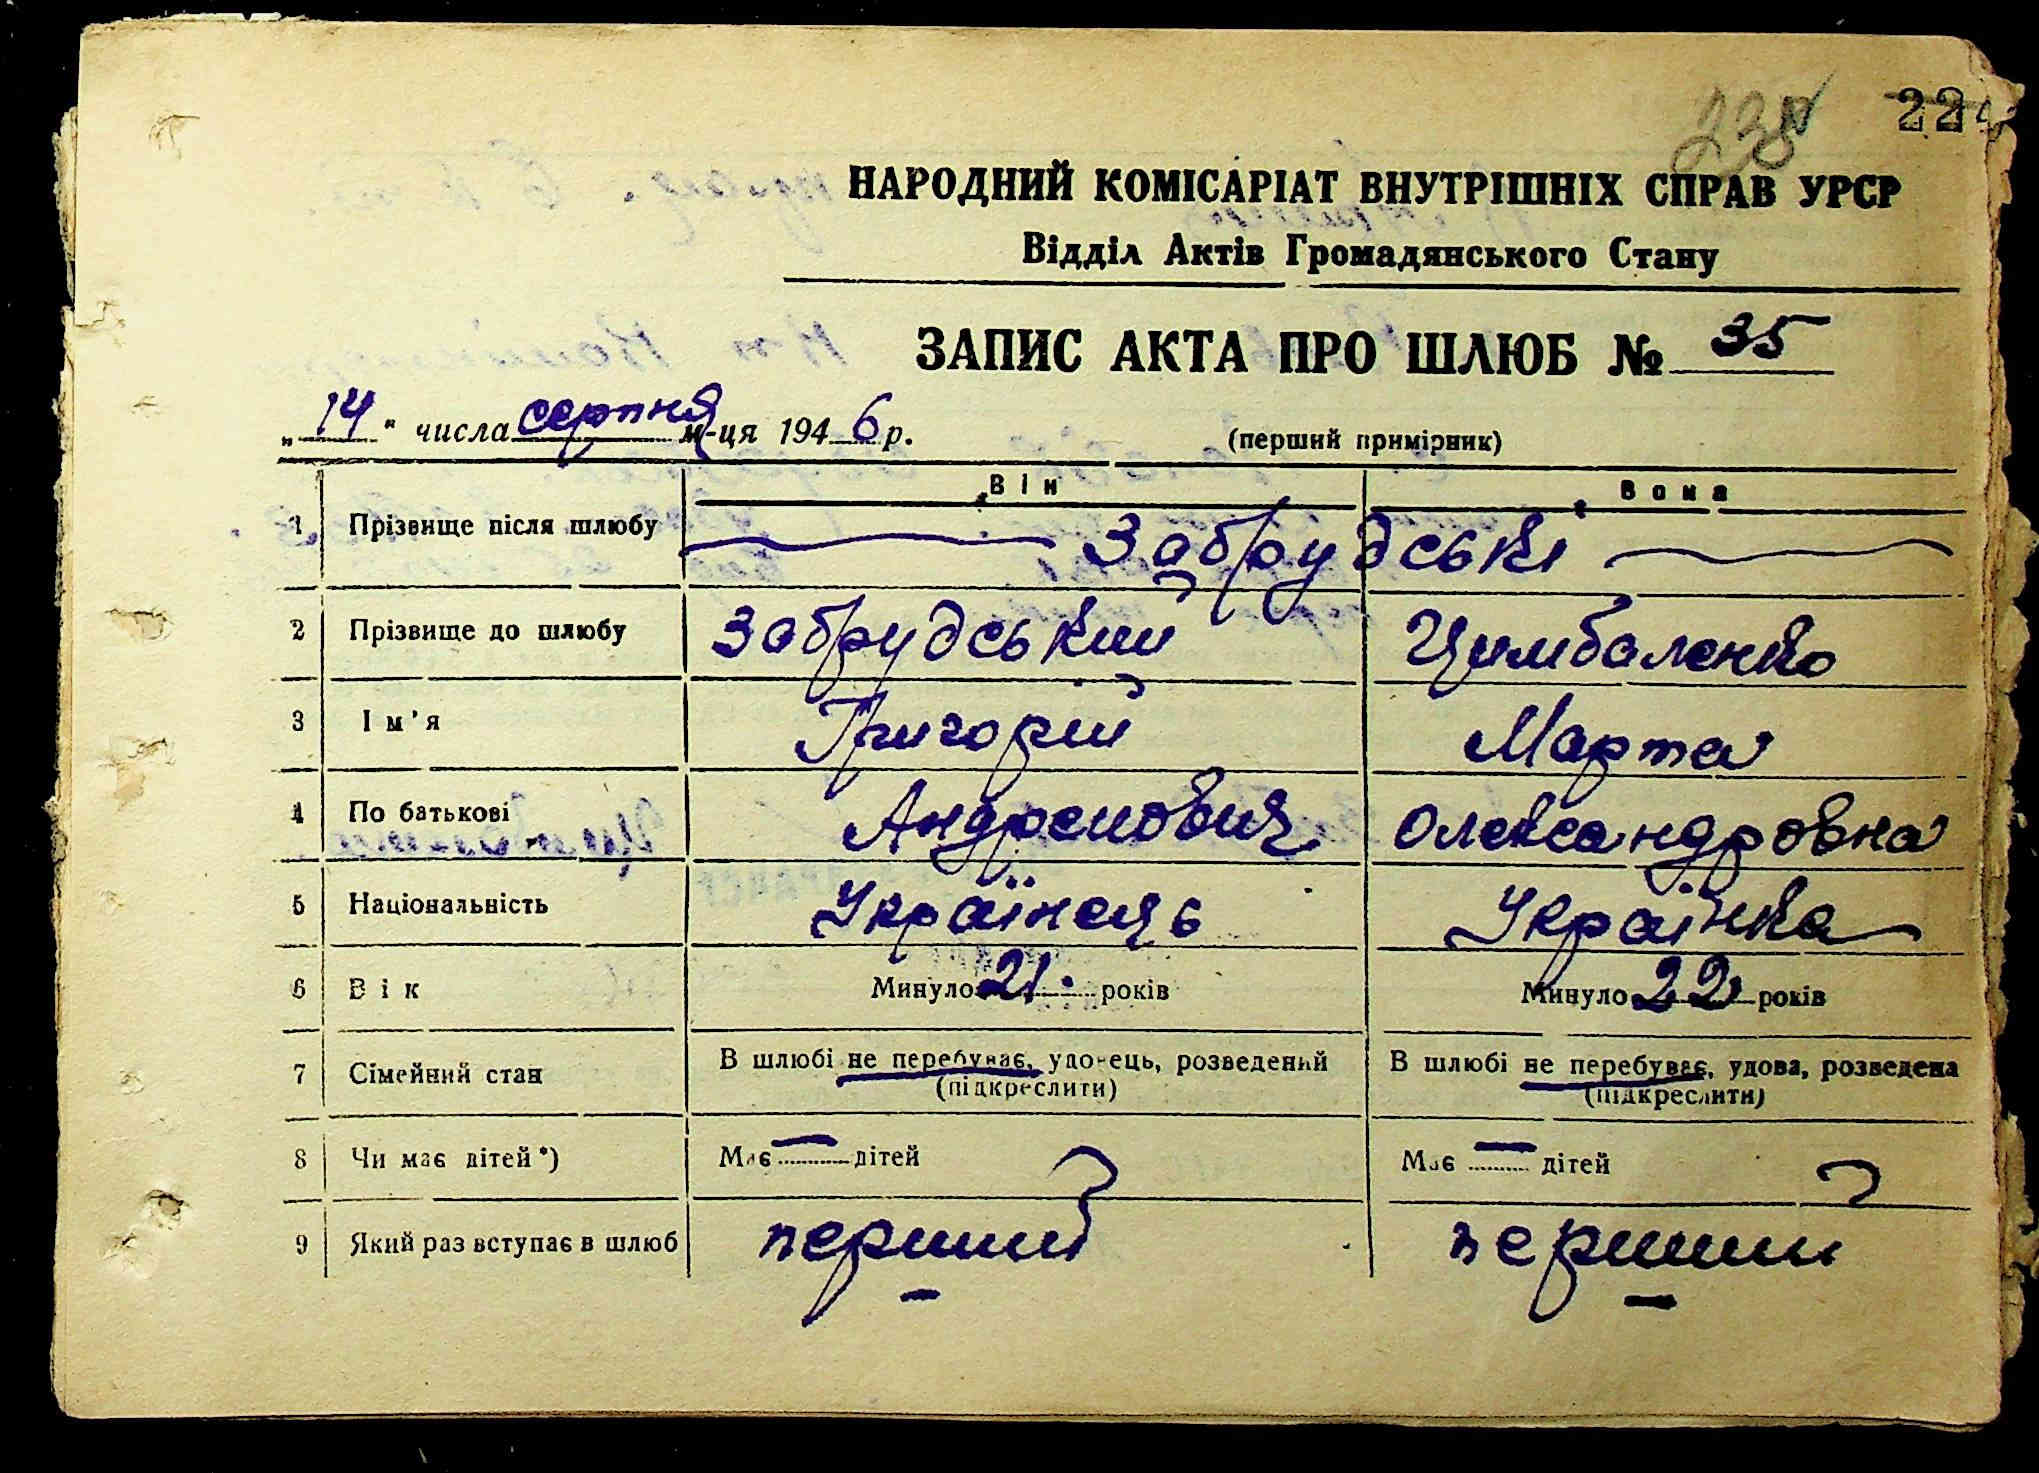 238 224
НАРОДНИЙ КОМІСАРІАТ ВНУТРІШНІХ СПРАВ УРСР
Відділ Актів Громадянського Стану
ЗАПИС АКТА ПРО ШЛЮБ № 35
„14“ числа серпня м-ця 1946 р. (перший примірник)
Він Вона
1 Прізвище після шлюбу Забрудські
2 Прізвище до шлюбу Забрудський Цимбаленко
3 Ім'я Григорій Марта
4 По батькові Андреиович Олександровна
5 Національність Українець Українка
6 Вік Минуло 21 років Минуло 22 років
7 Сімейний стан В шлюбі не перебуває, удовець, розведений В шлюбі не перебуває, удова, розведена
(підкреслити) (підкреслити)
8 Чи має дітей*) Має — дітей Має — дітей
9 Який раз вступає в шлюб перший перший